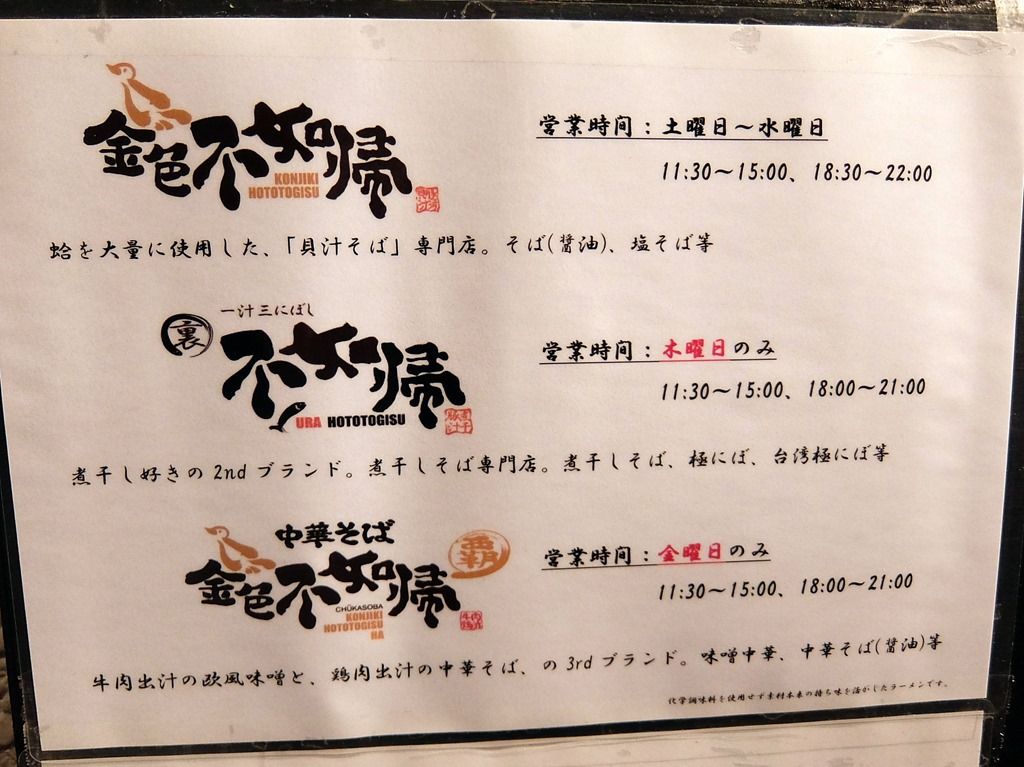 金色不如帰
KONJIKI
HOTOTOGISU
営業時間：土曜日～水曜日
11:30～15:00、18:30～22:00
蛤を大量に使用した、「貝汁そば」専門店。そば(醤油)、塩そば等
裏
一汁三にぼし
不如帰
URA HOTOTOGISU
営業時間：木曜日のみ
11:30～15:00、18:00～21:00
煮干し好きの 2nd ブランド。煮干しそば専門店。煮干しそば、極にぼ、台湾極にぼ等
中華そば
金色不如帰
覇
CHŪKASOBA
KONJIKI
HOTOTOGISU
HA
営業時間：金曜日のみ
11:30～15:00、18:00～21:00
牛肉出汁の欧風味噌と、鶏肉出汁の中華そば、の 3rd ブランド。味噌中華、中華そば(醤油)等
化学調味料を使用せず素材本来の持ち味を活かしたラーメンです。